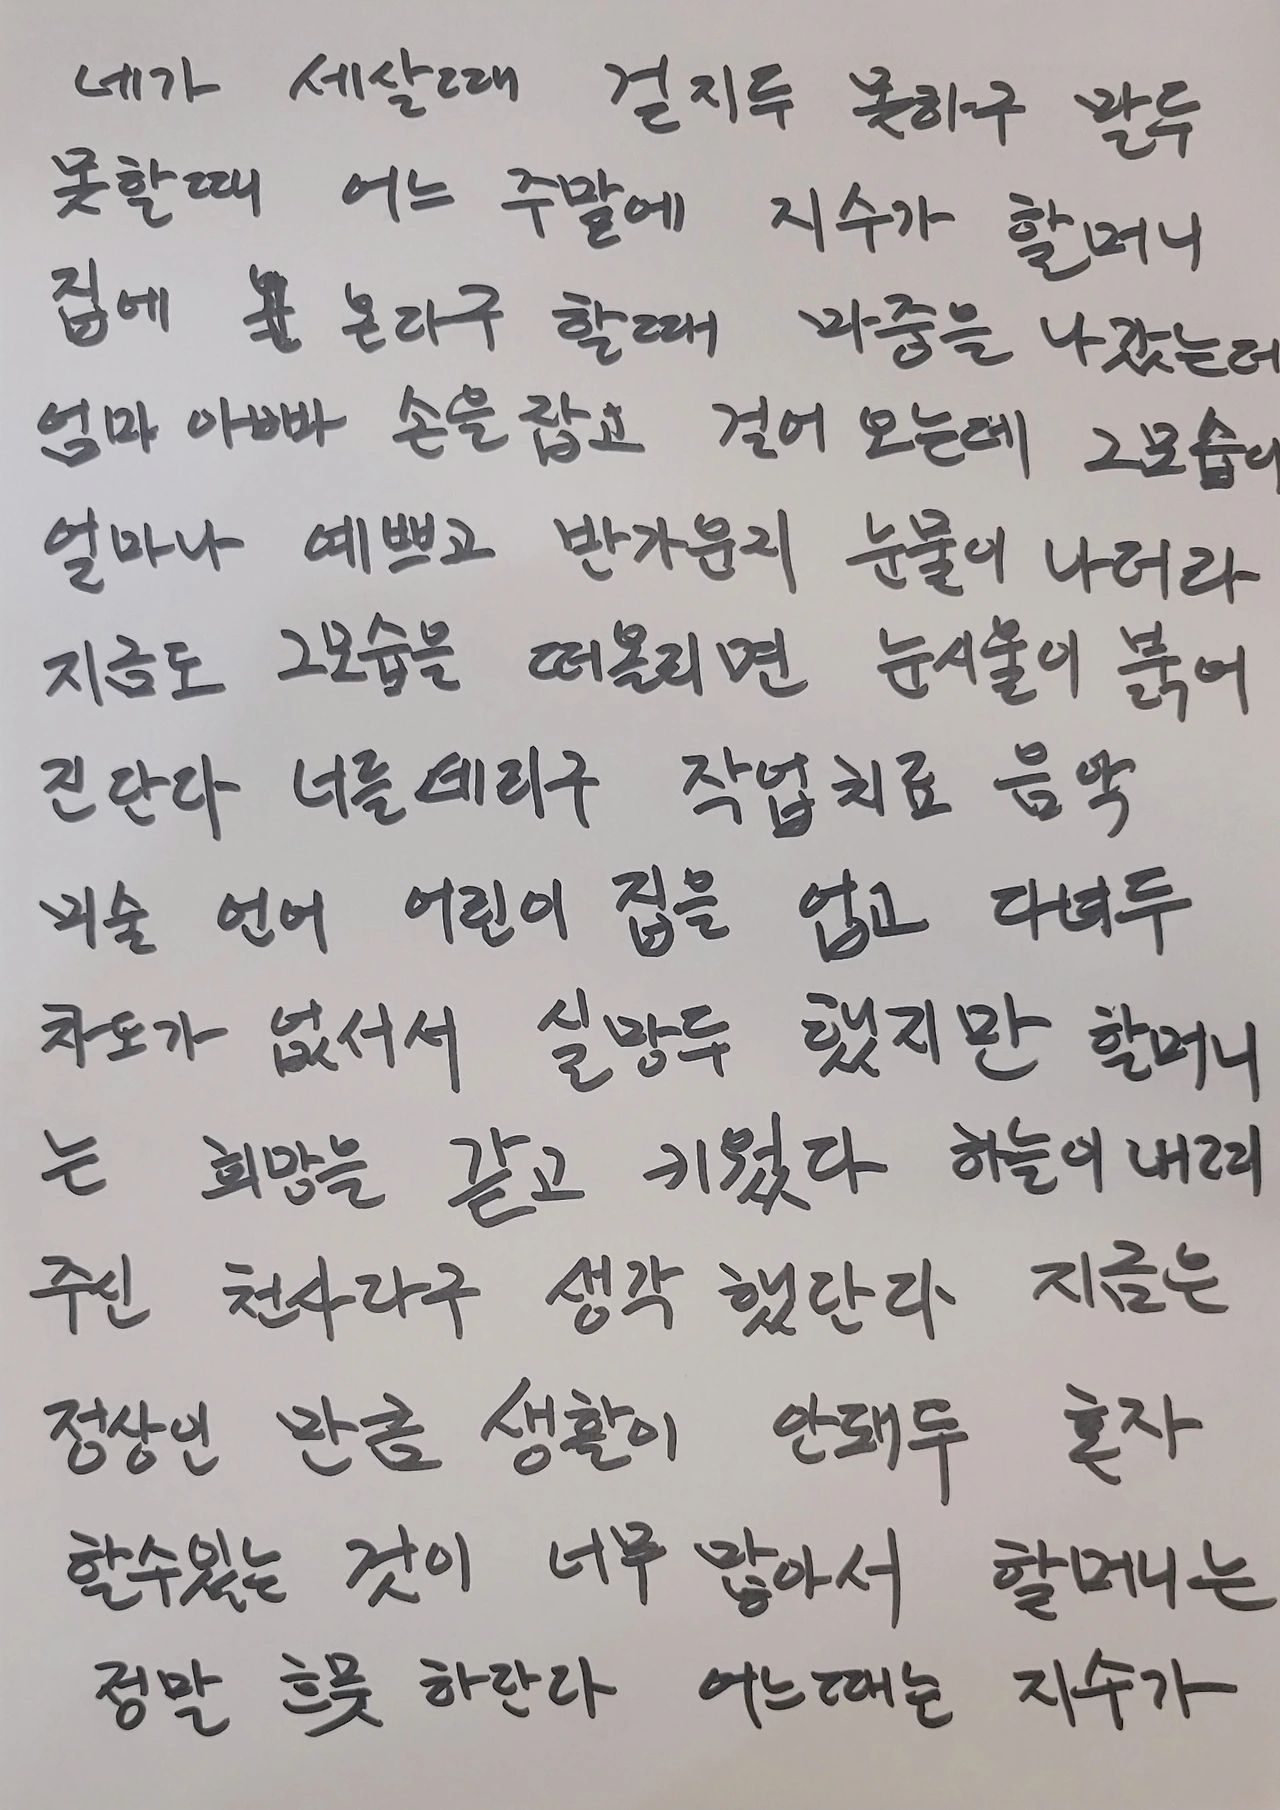 네가 세살때 걸지두 못하구 말두
못할때 어느 주말에 지수가 할머니
집에 온다구 할때 마중을 나갔는데
엄마 아빠 손을 잡고 걸어 오는데 그모습이
얼마나 예쁘고 반가운지 눈물이 나더라
지금도 그모습을 떠올리면 눈시울이 붉어
진단다 너를 데리구 작업치료 음악
미술 언어 어린이 집을 업고 다녀두
차도가 없서서 실망두 했지만 할머니
는 희망을 갇고 키웠다 하늘이 내려
주신 천사라구 생각 했단다 지금은
정상인 만큼 생활이 안돼두 혼자
할수있는 것이 너무 많아서 할머니는
정말 흐믓 하단다 어느때는 지수가